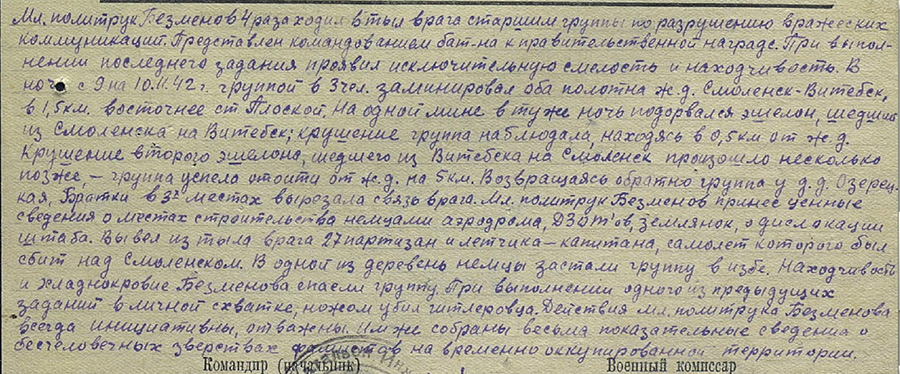 Мл. политрук Безменов 4 раза ходил в тыл врага старшим группы по разрушению вражеских
коммуникаций. Представлен командованием бат-на к правительственной награде. При выпол-
нении последнего задания проявил исключительную смелость и находчивость. В
ночь с 9 на 10.11.42 г. группой в 3 чел. заминировал оба полотна ж.д. Смоленск-Витебск,
в 1,5 км. восточнее ст. Плоской. На одной мине в ту же ночь подорвался эшелон, шедший
из Смоленска на Витебск; крушение группа наблюдала, находясь в 0,5 км от ж.д.
Крушение второго эшелона, шедшего из Витебска на Смоленск произошло несколько
позже, – группа успела отойти от ж.д. на 5 км. Возвращаясь обратно группа у д.д. Озерец-
кая, Братки в 3х местах вырезала связь врага. Мл. политрук Безменов принес ценные
сведения о местах строительства немцами аэродрома, ДЗОТ'ов, землянок, о дислокации
штаба. Вывел из тыла врага 27 партизан и летчика – капитана, самолет которого был
сбит над Смоленском. В одной из деревень немцы застали группу в избе. Находчивость
и хладнокровие Безменова спасли группу. При выполнении одного из предыдущих
заданий в личной схватке, ножом убил гитлеровца. Действия мл. политрука Безменова
всегда инициативны, отважны. Им же собраны весьма показательные сведения о
бесчеловечных зверствах фашистов на временно оккупированной территории.
Командир (начальник) Военный комиссар